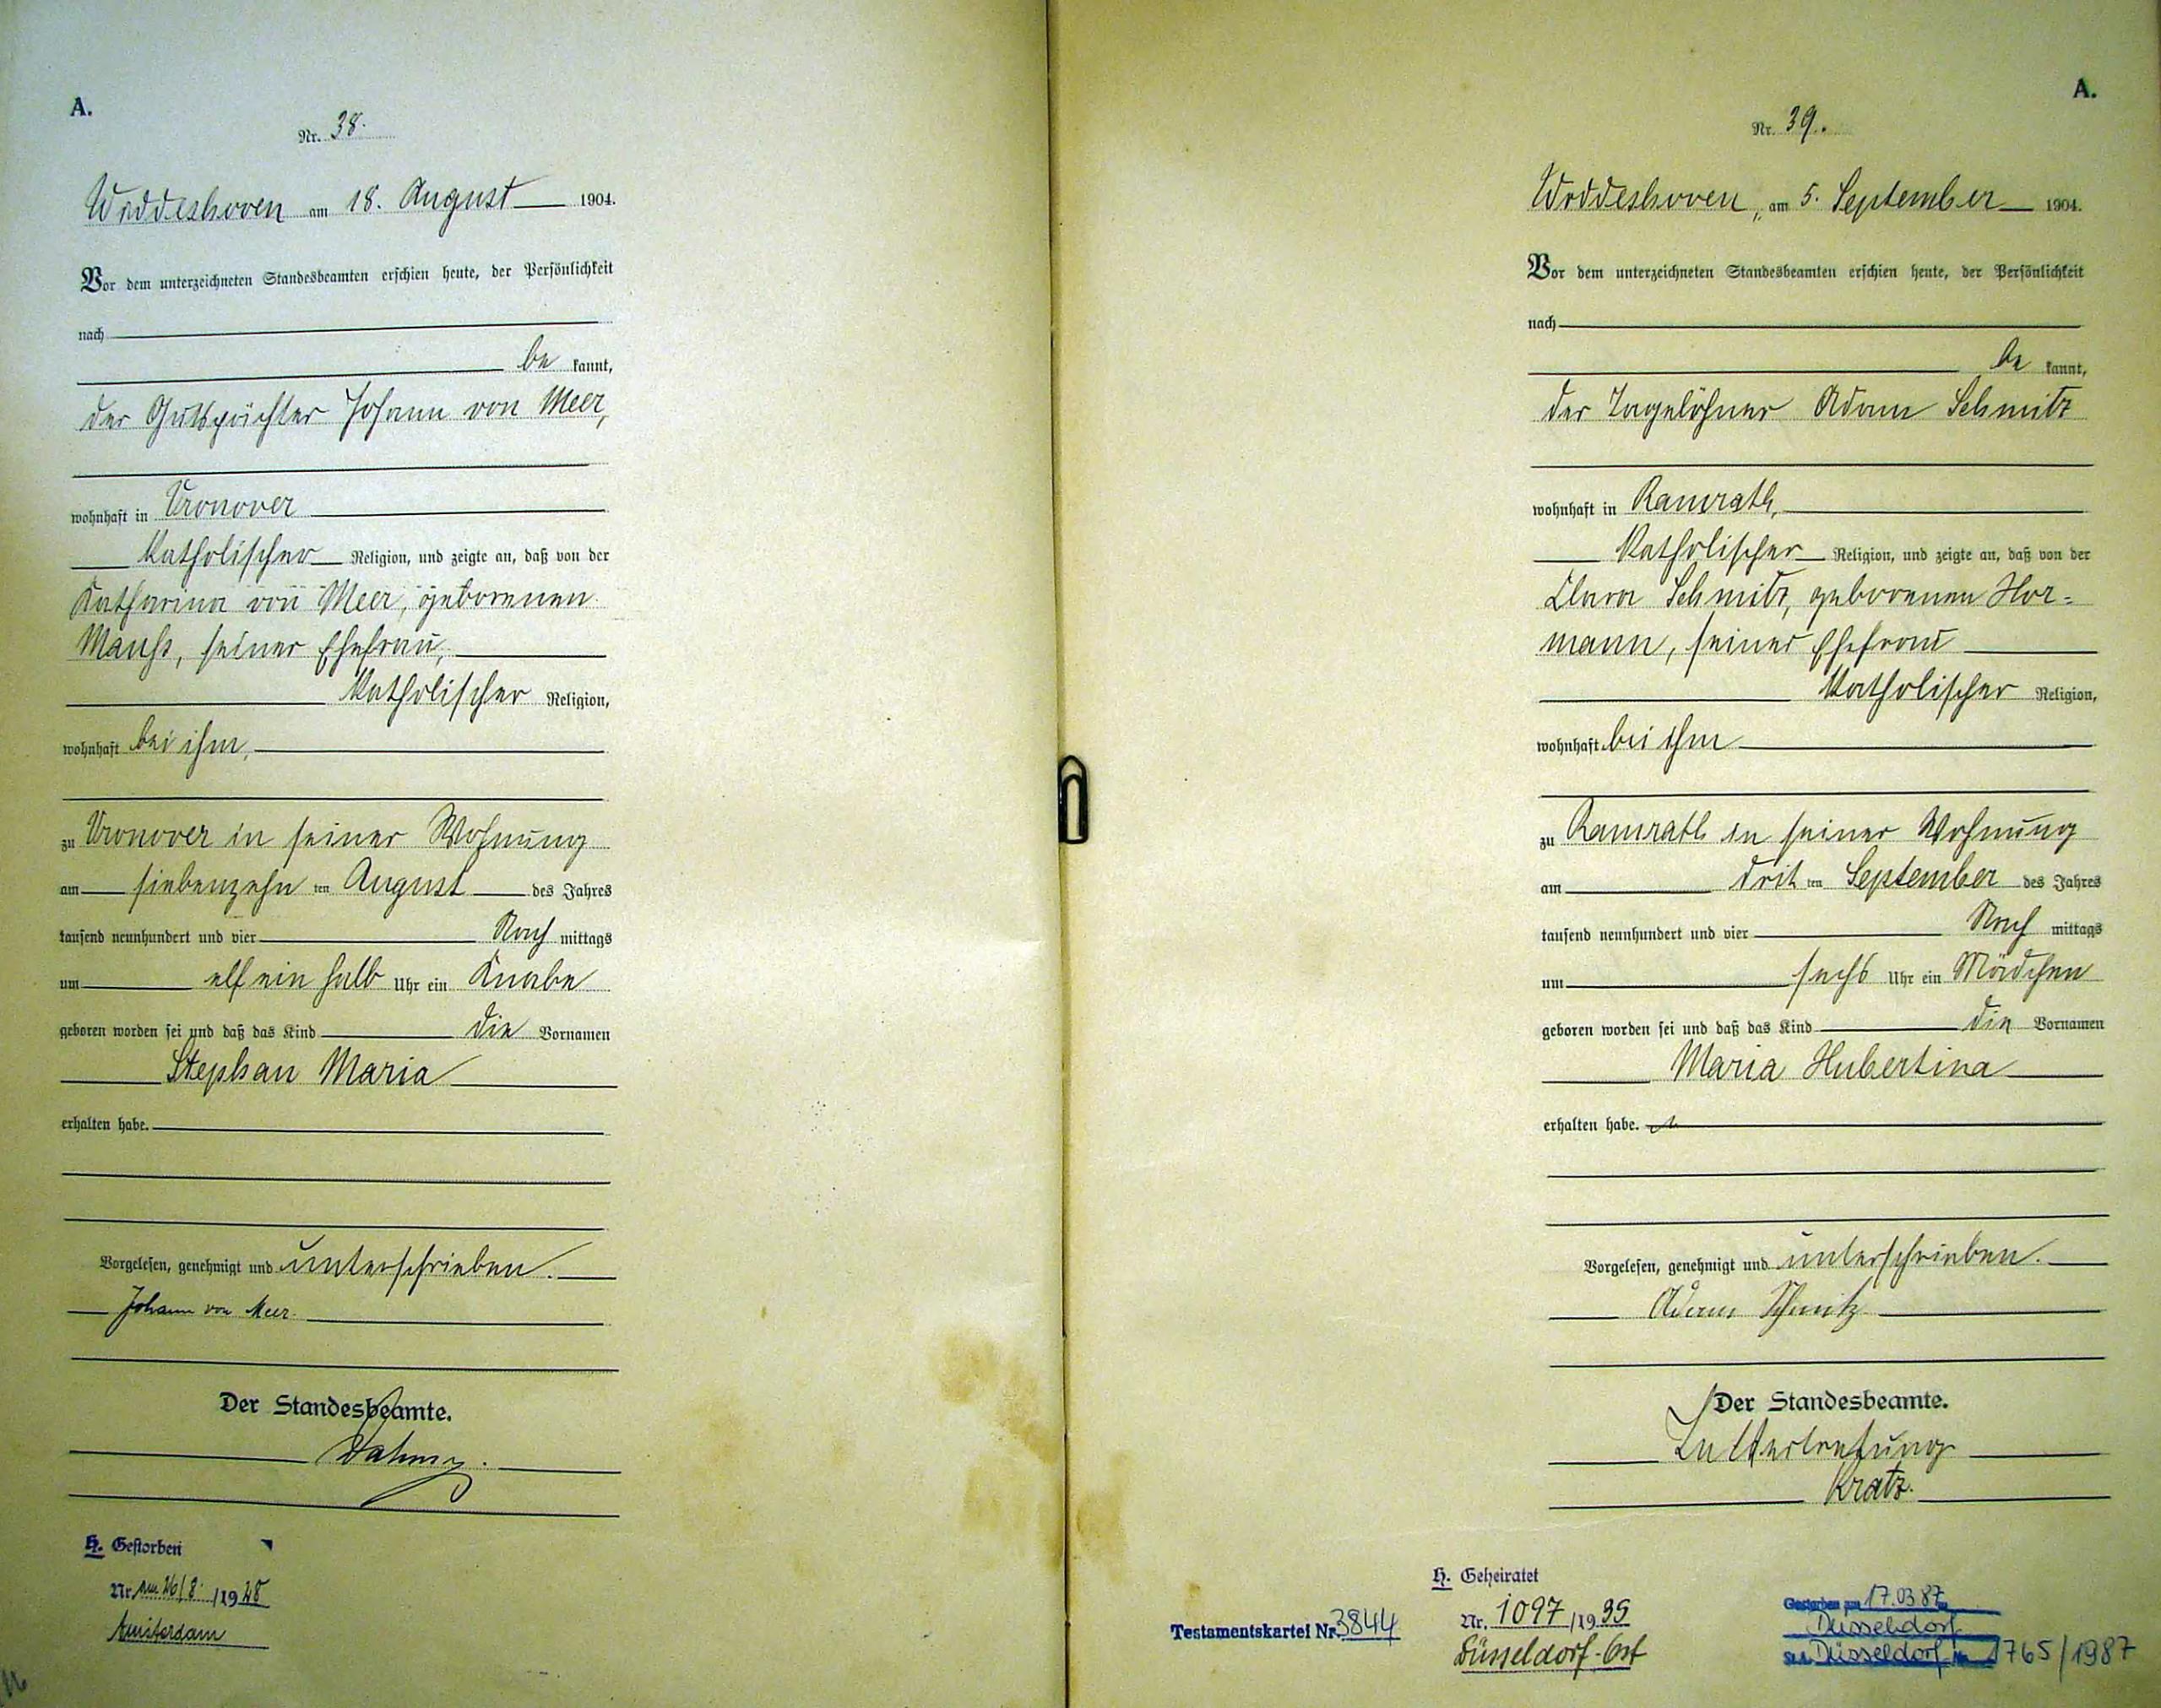 A.
Nr. 38.
Widdeshoven am 18. August 1904.
Vor dem unterzeichneten Standesbeamten erschien heute, der Persönlichkeit
nach
be kannt,
der Gutspächter Johann von Meer,
wohnhaft in Vronover
katholischer Religion, und zeigte an, daß von der
Katharina von Meer, geborenen
Mauhs, seiner Ehefrau,
katholischer Religion,
wohnhaft bei ihm,
zu Vronover in seiner Wohnung
am siebenzehn ten August des Jahres
tausend neunhundert und vier Nach mittags
um elf ein halb Uhr ein Knabe
geboren worden sei und daß das Kind die Vornamen
Stephan Maria
erhalten habe.
Vorgelesen, genehmigt und unterschrieben.
Johann von Meer
Der Standesbeamte.
H. Gestorben
Nr. am 26/8. /1928
Amsterdam
A.
Nr. 39.
Widdeshoven, am 5. September 1904.
Vor dem unterzeichneten Standesbeamten erschien heute, der Persönlichkeit
nach
be kannt,
der Tagelöhner Adam Schmitz
wohnhaft in Ramrath,
katholischer Religion, und zeigte an, daß von der
Clara Schmitz, geborenen Hor-
mann, seiner Ehefrau
katholischer Religion,
wohnhaft bei ihm
zu Ramrath in seiner Wohnung
am drit ten September des Jahres
tausend neunhundert und vier Nach mittags
um sechs Uhr ein Mädchen
geboren worden sei und daß das Kind die Vornamen
Maria Hubertina
erhalten habe.
Vorgelesen, genehmigt und unterschrieben.
Adam Schmitz
Der Standesbeamte.
In Vertretung
Kratz.
Testamentskartei Nr. 3844
H. Geheiratet
Nr. 1097/1935
Düsseldorf-Ost
Gestorben am 17.03.87 in
Düsseldorf
St.A. Düsseldorf Nr. 1765/1987